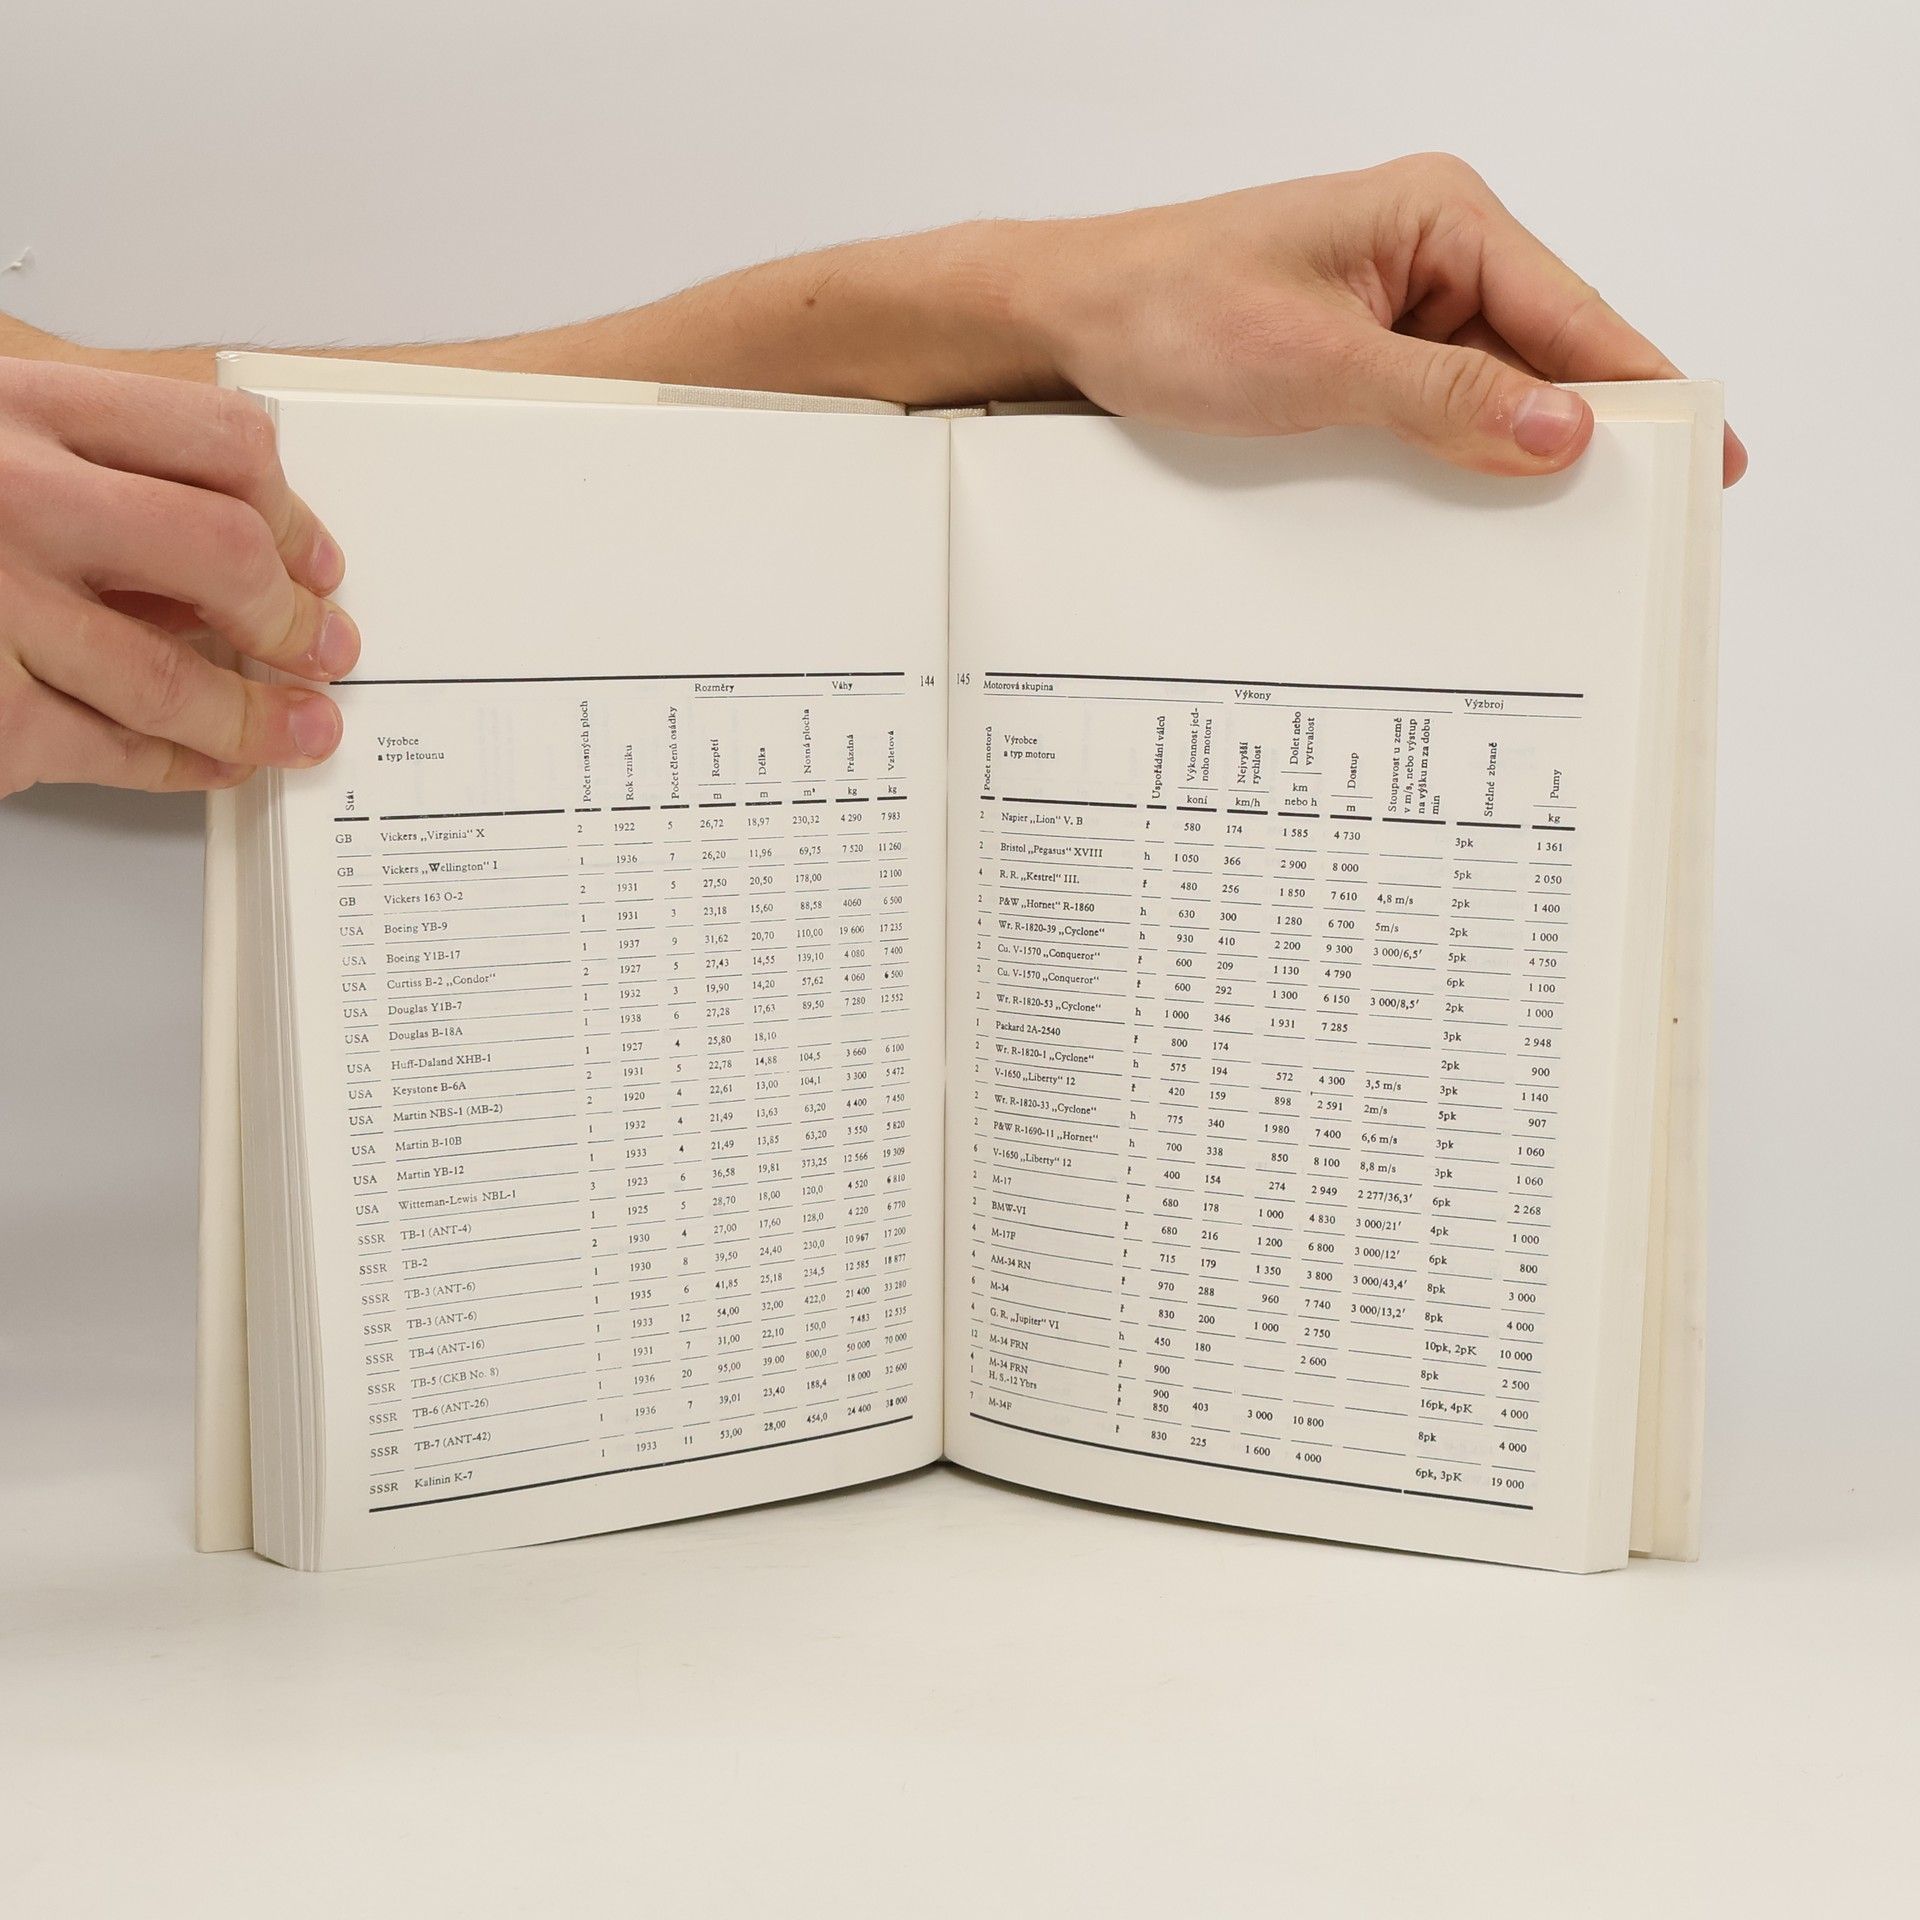 Rozměry Váhy 144
Stát
Výrobce
a typ letounu
Počet nosných ploch
Rok vzniku
Počet členů osádky
Rozpětí
Délka
Nosná plocha
Prázdná
Vzletová
m m m² kg kg
GB Vickers „Virginia“ X 2 1922 5 26,72 18,97 230,32 4 290 7 983
GB Vickers „Wellington“ I 1 1936 7 26,20 11,96 69,75 7 520 11 260
GB Vickers 163 O-2 2 1931 5 27,50 20,50 178,00 12 100
USA Boeing YB-9 1 1931 3 23,18 15,60 88,58 4060 6 500
USA Boeing Y1B-17 1 1937 9 31,62 20,70 110,00 19 600 17 235
USA Curtiss B-2 „Condor“ 2 1927 5 27,43 14,55 139,10 4 080 7 400
USA Douglas Y1B-7 1 1932 3 19,90 14,20 57,62 4 060 6 500
USA Douglas B-18A 1 1938 6 27,28 17,63 89,50 7 280 12 552
USA Huff-Daland XHB-1 1 1927 4 25,80 18,10
USA Keystone B-6A 2 1931 5 22,78 14,88 104,5 3 660 6 100
USA Martin NBS-1 (MB-2) 2 1920 4 22,61 13,00 104,1 3 300 5 472
USA Martin B-10B 1 1932 4 21,49 13,63 63,20 4 400 7 450
USA Martin YB-12 1 1933 4 21,49 13,85 63,20 3 550 5 820
USA Witteman-Lewis NBL-1 3 1923 6 36,58 19,81 373,25 12 566 19 309
SSSR TB-1 (ANT-4) 1 1925 5 28,70 18,00 120,0 4 520 6 810
SSSR TB-2 2 1930 4 27,00 17,60 128,0 4 220 6 770
SSSR TB-3 (ANT-6) 1 1930 8 39,50 24,40 230,0 10 967 17 200
SSSR TB-3 (ANT-6) 1 1935 6 41,85 25,18 234,5 12 585 18 877
SSSR TB-4 (ANT-16) 1 1933 12 54,00 32,00 422,0 21 400 33 280
SSSR TB-5 (CKB No. 8) 1 1931 7 31,00 22,10 150,0 7 483 12 535
SSSR TB-6 (ANT-26) 1 1936 20 95,00 39,00 800,0 50 000 70 000
SSSR TB-7 (ANT-42) 1 1936 7 39,01 23,40 188,4 18 000 32 600
SSSR Kalinin K-7 1 1933 11 53,00 28,00 454,0 24 400 38 000
145 Motorová skupina Výkony Výzbroj
Počet motorů
Výrobce
a typ motoru
Uspořádání válců
Výkonnost jed-
noho motoru
Nejvyšší
rychlost
Dolet nebo
vytrvalost
Dostup
Stoupavost u země
v m/s, nebo výstup
na výšku m za dobu
min
Střelné zbraně
Pumy
koní km/h km
nebo h m kg
2 Napier „Lion“ V. B ř 580 174 1 585 4 730 3pk 1 361
2 Bristol „Pegasus“ XVIII h 1 050 366 2 900 8 000 5pk 2 050
4 R. R. „Kestrel“ III. ř 480 256 1 850 7 610 4,8 m/s 2pk 1 400
2 P&W „Hornet“ R-1860 h 630 300 1 280 6 700 5m/s 2pk 1 000
4 Wr. R-1820-39 „Cyclone“ h 930 410 2 200 9 300 3 000/6,5′ 5pk 4 750
2 Cu. V-1570 „Conqueror“ ř 600 209 1 130 4 790 6pk 1 100
2 Cu. V-1570 „Conqueror“ ř 600 292 1 300 6 150 3 000/8,5′ 2pk 1 000
2 Wr. R-1820-53 „Cyclone“ h 1 000 346 1 931 7 285 3pk 2 948
1 Packard 2A-2540 ř 800 174 2pk 900
2 Wr. R-1820-1 „Cyclone“ h 575 194 572 4 300 3,5 m/s 3pk 1 140
2 V-1650 „Liberty“ 12 ř 420 159 898 2 591 2m/s 5pk 907
2 Wr. R-1820-33 „Cyclone“ h 775 340 1 980 7 400 6,6 m/s 3pk 1 060
2 P&W R-1690-11 „Hornet“ h 700 338 850 8 100 8,8 m/s 3pk 1 060
6 V-1650 „Liberty“ 12 ř 400 154 274 2 949 2 277/36,3′ 6pk 2 268
2 M-17 ř 680 178 1 000 4 830 3 000/21′ 4pk 1 000
2 BMW-VI ř 680 216 1 200 6 800 3 000/12′ 6pk 800
4 M-17F ř 715 179 1 350 3 800 3 000/43,4′ 8pk 3 000
4 AM-34 RN ř 970 288 960 7 740 3 000/13,2′ 8pk 4 000
6 M-34 ř 830 200 1 000 2 750 10pk, 2pK 10 000
4 G. R. „Jupiter“ VI h 450 180 2 600 8pk 2 500
12 M-34 FRN ř 900 16pk, 4pK 4 000
4 M-34 FRN ř 900 403 3 000 10 800 8pk 4 000
1 H. S.-12 Ybrs ř 850
7 M-34F ř 830 225 1 600 4 000 6pk, 3pK 19 000